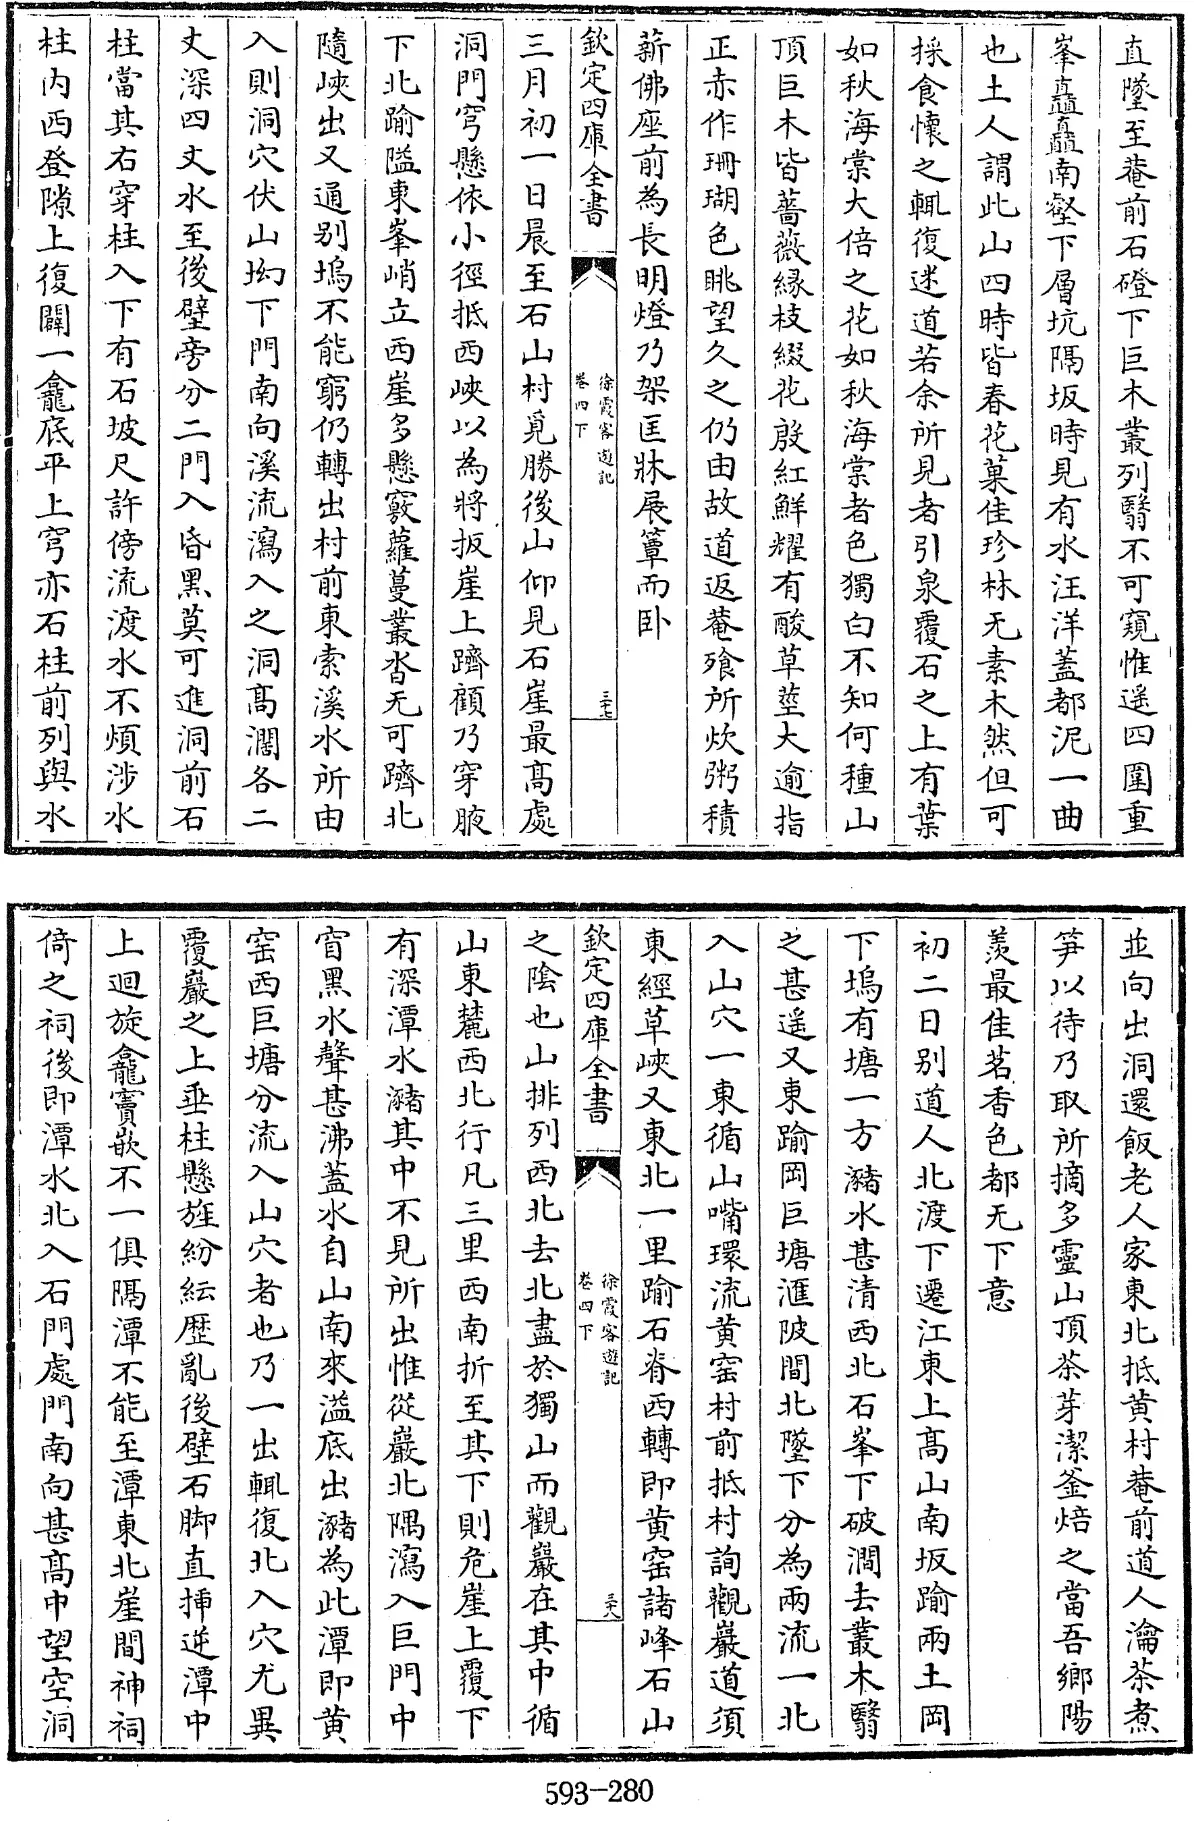 直墜至菴前石磴下巨木叢列翳不可窺惟遥四圍重
峯矗矗南壑下層坑隔坂時見有水汪洋蓋都泥一曲
也土人謂此山四時皆春花菓佳珍林无素木然但可
採食懷之輒復迷道若余所見者引泉覆石之上有葉
如秋海棠大倍之花如秋海棠者色獨白不知何種山
頂巨木皆薔薇縁枝綴花殷紅鮮耀有酸草莖大逾指
正赤作珊瑚色眺望久之仍由故道返菴飱所炊粥積
薪佛座前為長明燈乃架匡牀展簟而卧
欽定四庫全書
徐霞客遊記
卷四下
三十七
三月初一日晨至石山村覓勝後山仰見石崖最髙處
洞門穹懸依小徑抵西峽以為將扳崖上躋顧乃穿腋
下北踰隘東峯峭立西崖多懸竅蘿蔓叢沓无可躋北
隨峽出又通别塢不能窮仍轉出村前東索溪水所由
入則洞穴伏山坳下門南向溪流瀉入之洞髙濶各二
丈深四丈水至後壁旁分二門入昏黑莫可進洞前石
柱當其右穿柱入下有石坡尺許傍流渡水不煩涉水
柱内西登隙上復闢一龕底平上穹亦石柱前列與水
並向出洞還飯老人家東北抵黄村菴前道人瀹茶煮
笋以待乃取所摘多靈山頂茶芽潔釜焙之當吾鄉陽
羡最佳茗香色都无下意
初二日别道人北渡下遷江東上髙山南坂踰兩土岡
下塢有塘一方瀦水甚清西北石峯下破澗去叢木翳
之甚遥又東踰岡巨塘滙陂間北墜下分為兩流一北
入山穴一東循山嘴環流黄窑村前抵村詢觀巖道須
東經草峽又東北一里踰石脊西轉即黄窑諸峰石山
欽定四庫全書
徐霞客遊記
卷四下
三十八
之陰也山排列西北去北盡於獨山而觀巖在其中循
山東麓西北行凡三里西南折至其下則危崖上覆下
有深潭水瀦其中不見所出惟從巖北隅瀉入巨門中
窅黑水聲甚沸蓋水自山南來溢底出瀦為此潭即黄
窑西巨塘分流入山穴者也乃一出輒復北入穴尤異
覆巖之上垂柱懸旌紛紜歴亂後壁石脚直揷逆潭中
上迴旋龕竇嵌不一俱隔潭不能至潭東北崖間神祠
倚之祠後即潭水北入石門處門南向甚髙中望空洞
593-280